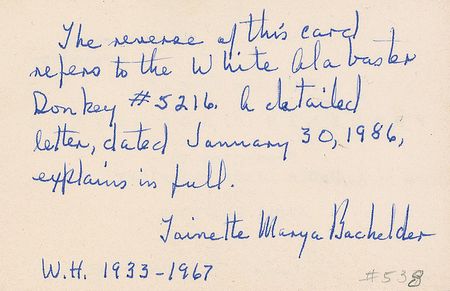 The reverse of this card
refers to the White Alabaster
Donkey #5216. A detailed
letter, dated January 30, 1986,
explains in full.
Toinette Marya Bachelder
W.H. 1933-1967
#538